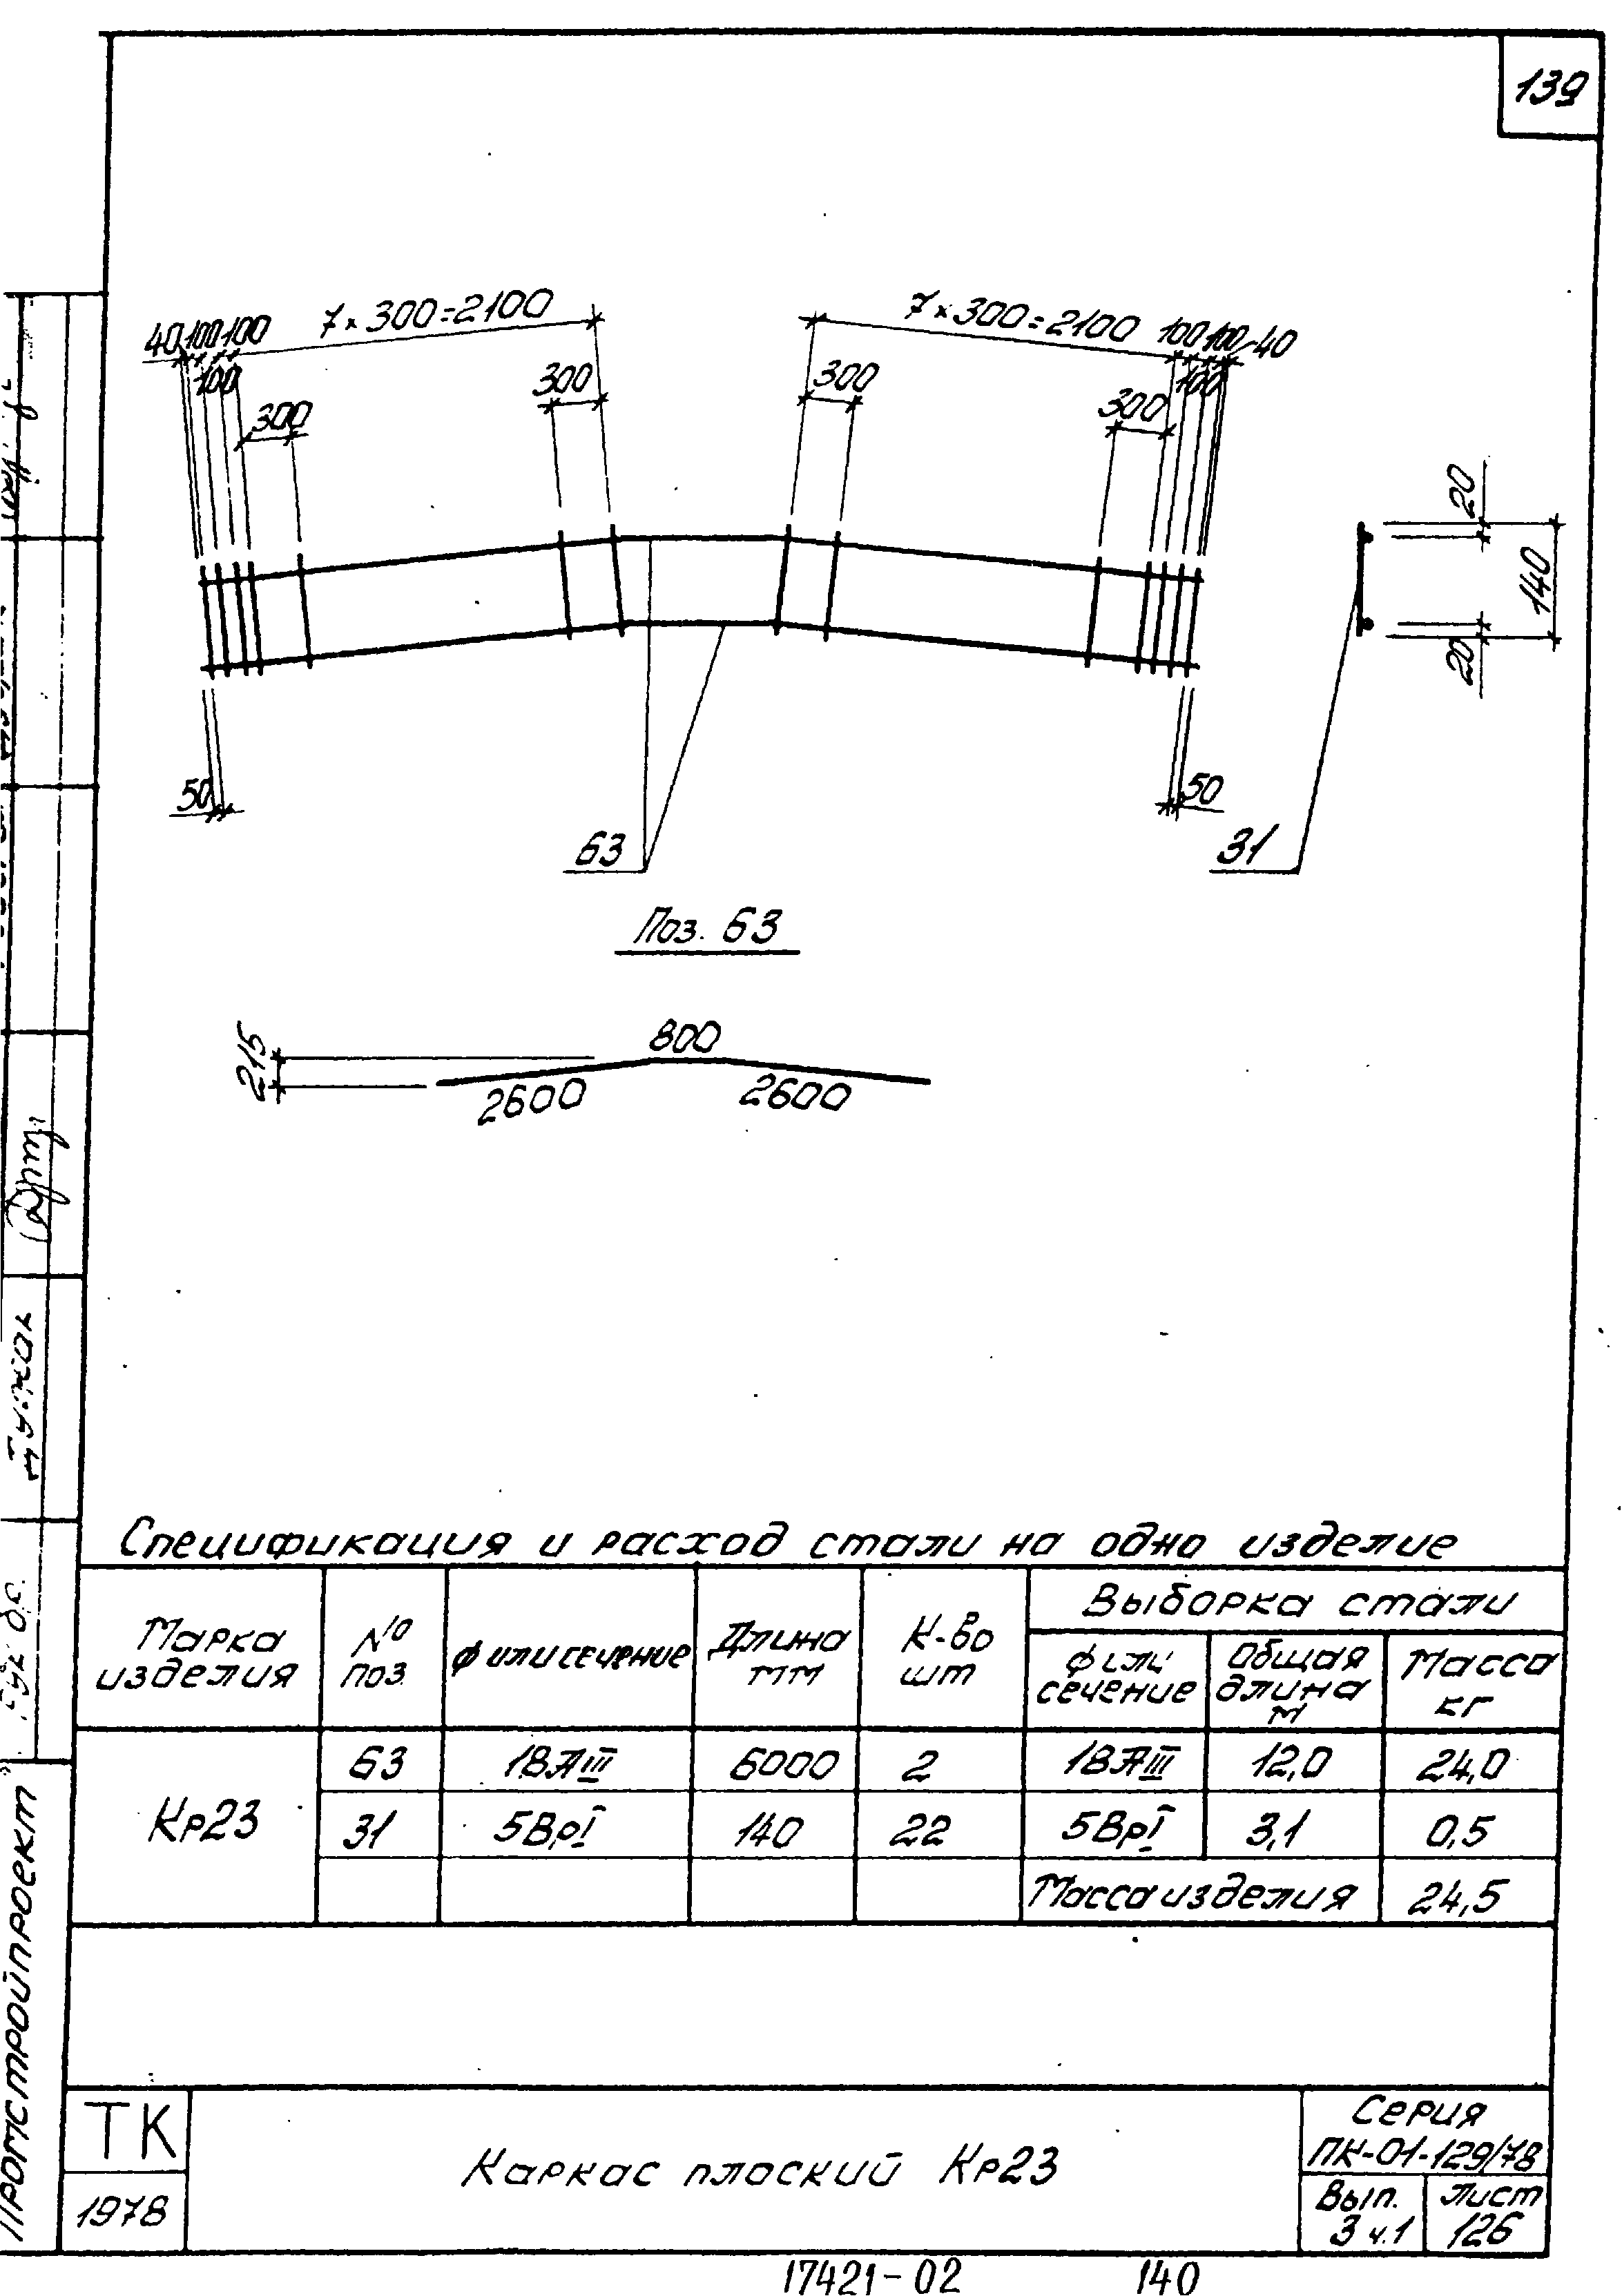 139
40 100 100 7×300=2100
100
300
300
7×300=2100 100 100 40
100
300
300
20
140
20
50
50
63
31
Поз. 63
215
800
2600
2600
Спецификация и расход стали на одно изделие
Марка изделия
№ поз.
ф или сечение
Длина мм
К-во шт
Выборка стали
ф или сечение
Общая длина м
Масса кг
Кр23
63 18АIII 6000 2 18АIII 12,0 24,0
31 5ВрI 140 22 5ВрI 3,1 0,5
Масса изделия 24,5
ТК
1978
Каркас плоский Кр23
Серия
ПК-01-129/78
Вып.
3 ч.1
Лист
126
17421-02 140
Промстройпроект